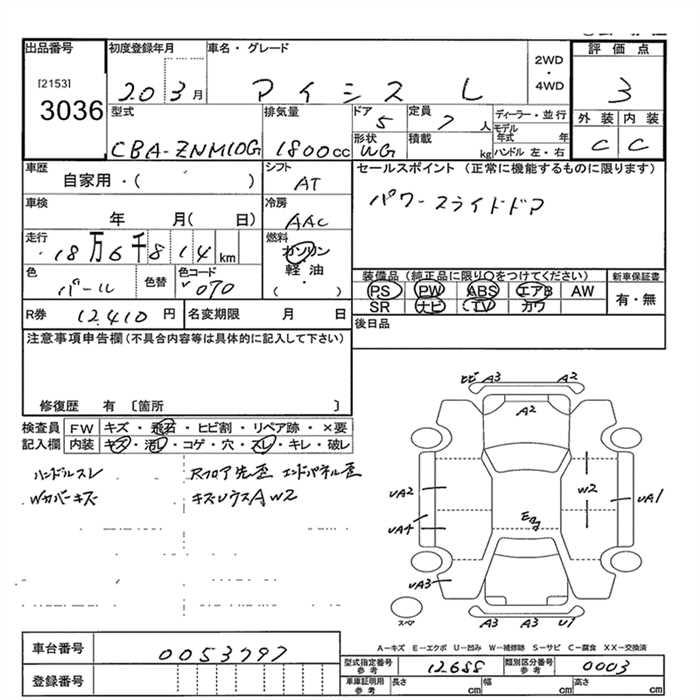 出品番号 初度登録年月 車名・グレード 2WD ・ 4WD 評価点
[2153] 3036 20 3月 アイシス L 3
型式 排気量 ドア 5 定員 7人 ディーラー・並行 外装 内装
CBA-ZNM10G 1800cc 形状 WG 積載 kg モデル年式 年 ハンドル 左・右 C C
車歴 シフト セールスポイント (正常に機能するものに限ります)
自家用・( ) AT パワースライドドア
車検 年 月( 日) 冷房 AAC
走行 18万6千814km 燃料 ガソリン・軽油・( )
色 パール 色替 色コード 070
装備品 (純正品に限り○をつけてください) 新車保証書
PS PW ABS エアB AW 有・無
SR ナビ TV カワ
R券 12,410円 名変期限 月 日 後日品
注意事項申告欄 (不具合内容等は具体的に記入して下さい)
修復歴 有 〔箇所 〕
検査員記入欄 FW キズ・飛石・ヒビ割・リペア跡・×要
内装 キズ・汚レ・コゲ・穴・スレ・キレ・破レ
ハンドルスレ Rフロア先歪 エンドパネル歪
Wカバーキズ キズUウスA W2
ヒビ A3 A2
A2
UA2 W2 UA1
UA4
UA3
A3 A3 U1
スペア
A-キズ E-エクボ U-凹み W-補修跡 S-サビ C-腐食 XX-交換済
車台番号 0053797
型式指定番号 参考 12688 類別区分番号 参考 0003
登録番号
車庫証明用 参考 長さ cm 幅 cm 高さ cm